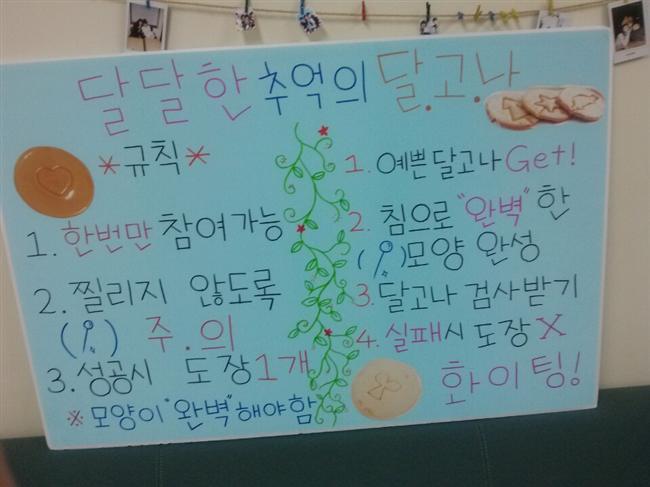 달달한 추억의 달.고.나
*규칙*
1. 한번만 참여가능
2. 찔리지 않도록
( ) 주.의
3. 성공시 도장1개
※ 모양이 "완벽"해야함
1. 예쁜달고나 Get!
2. 침으로 "완벽"한
( )모양 완성
3. 달고나 검사받기
4. 실패시 도장 X
화이팅!